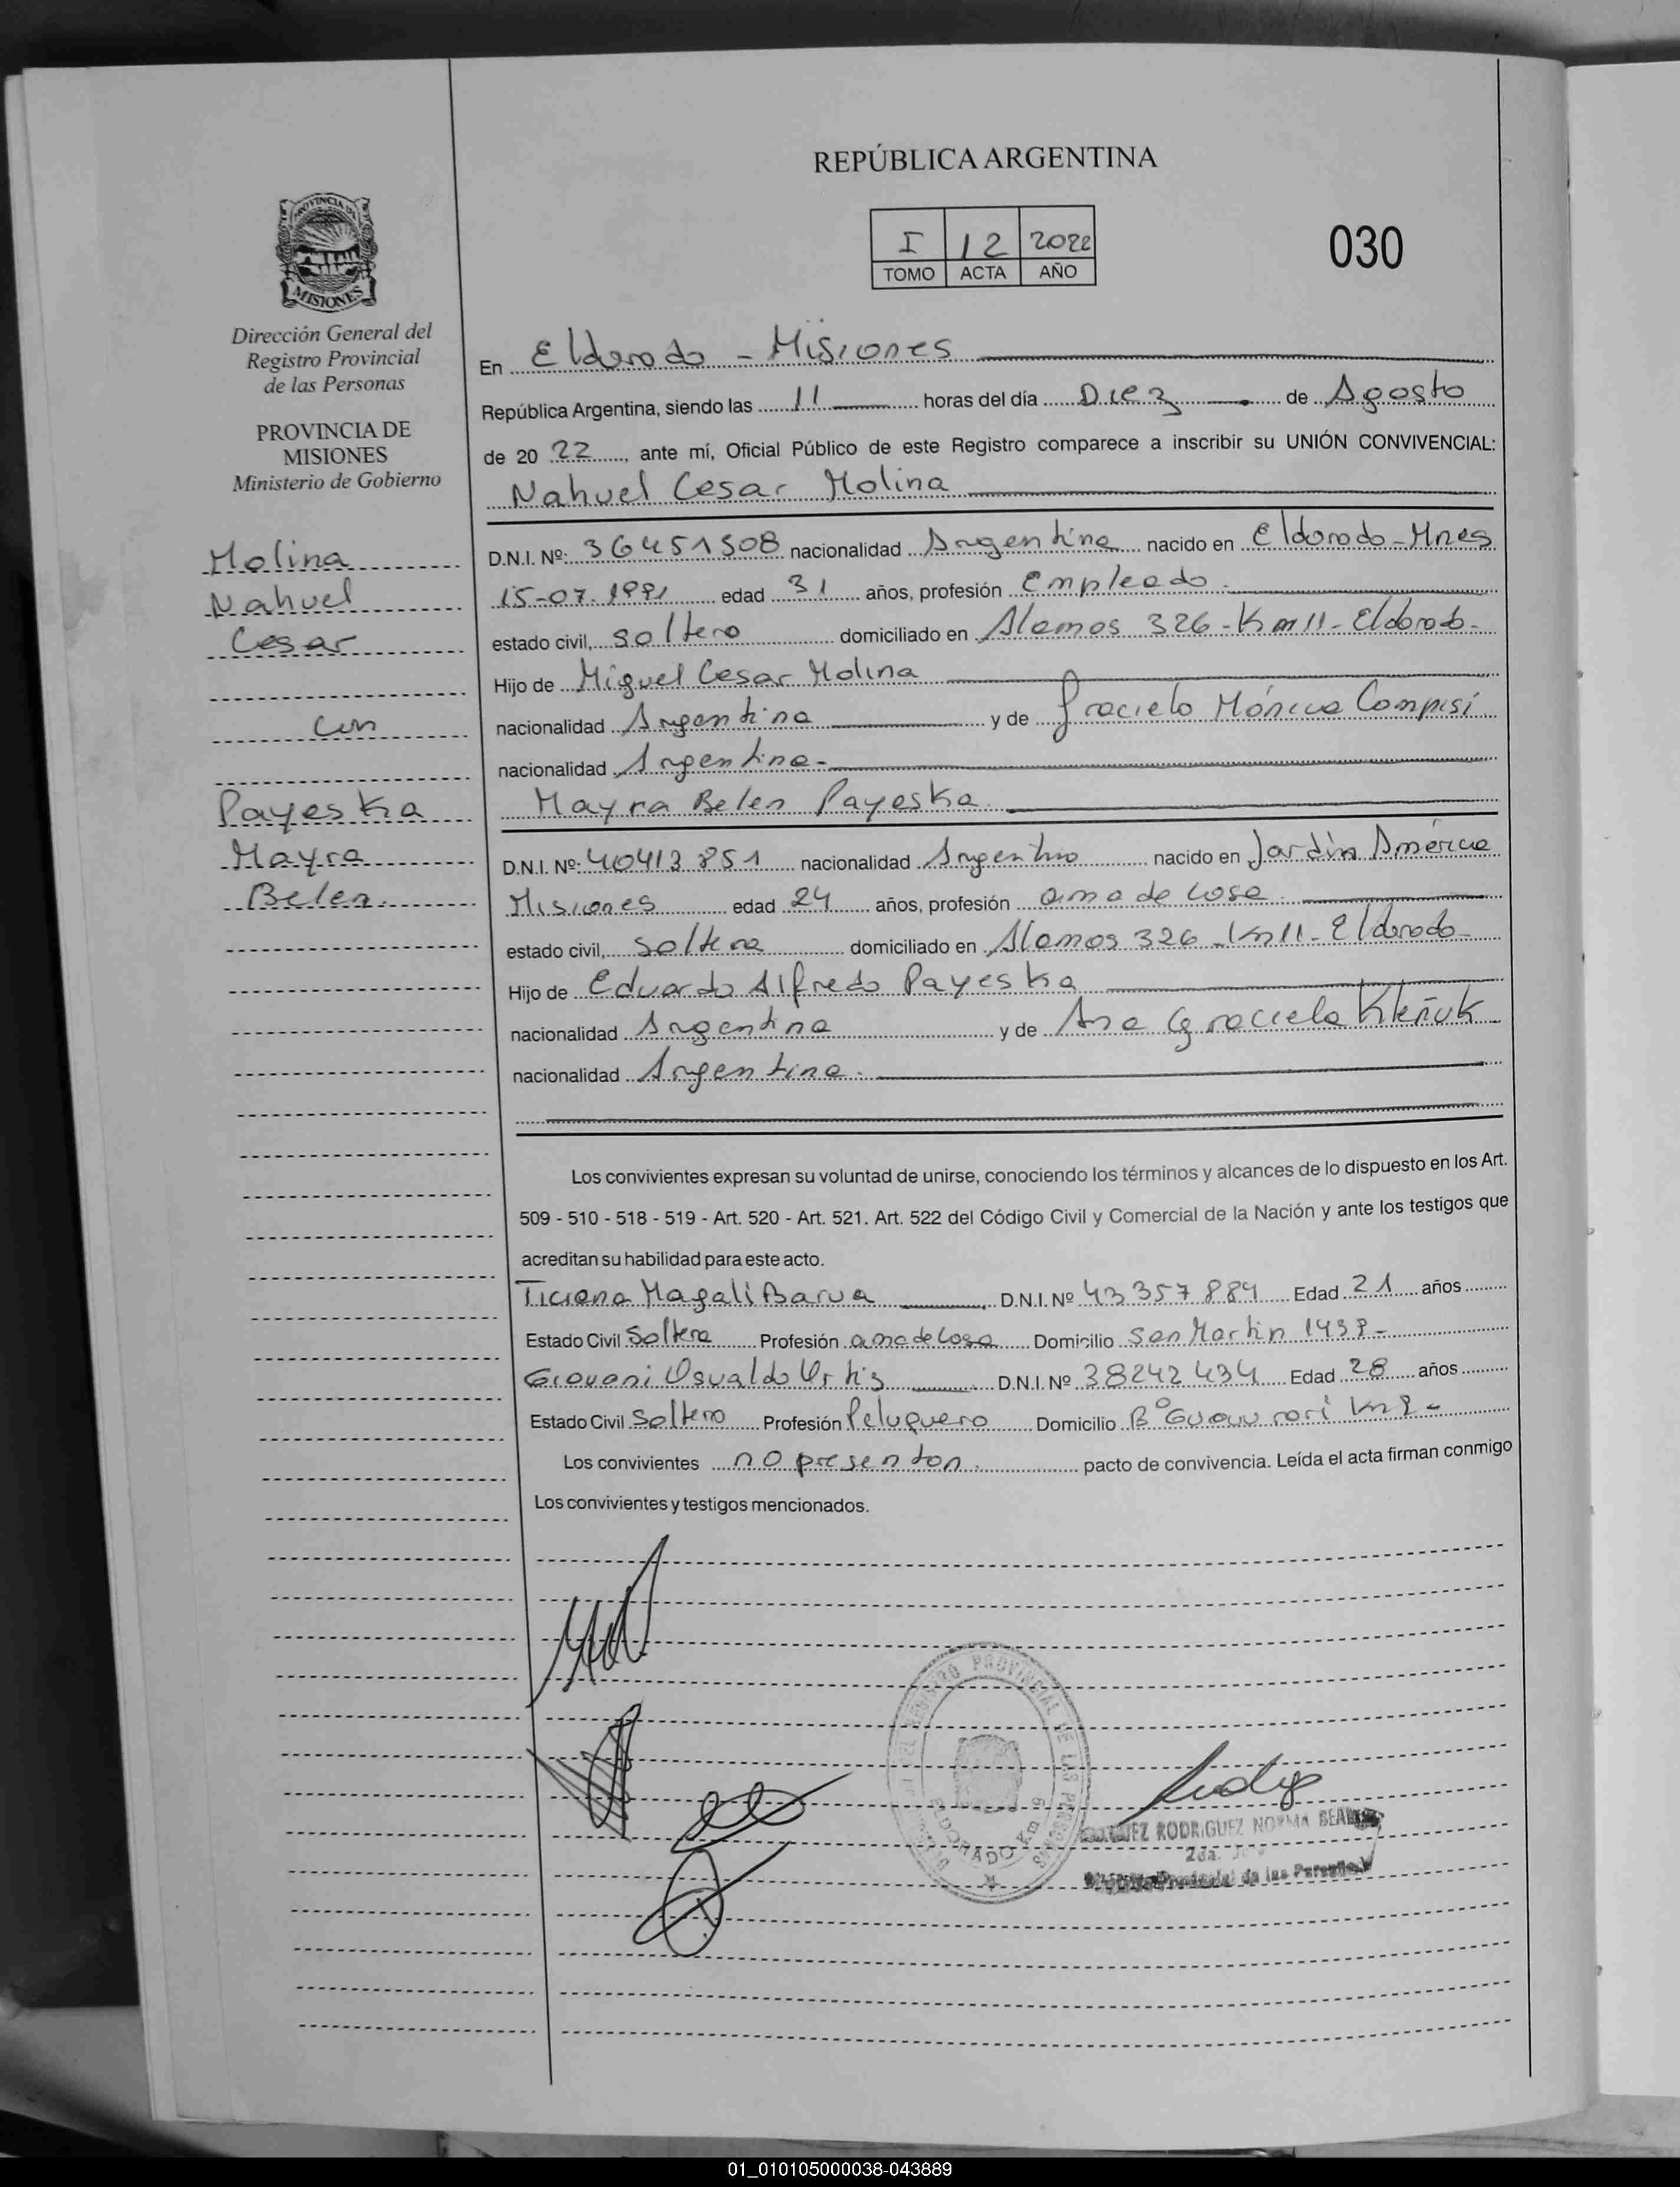 REPÚBLICA ARGENTINA
I 12 2022
TOMO ACTA AÑO
030
PROVINCIA DE
MISIONES
Dirección General del
Registro Provincial
de las Personas
PROVINCIA DE
MISIONES
Ministerio de Gobierno
Molina
Nahuel
Cesar
con
Payeska
Mayra
Belen.
En Eldorado - Misiones
República Argentina, siendo las 11 horas del día Diez de Agosto
de 20 22, ante mí, Oficial Público de este Registro comparece a inscribir su UNIÓN CONVIVENCIAL:
Nahuel Cesar Molina
D.N.I. Nº: 36451508 nacionalidad Argentina nacido en Eldorado-Mnes
15-07-1991 edad 31 años, profesión Empleado.
estado civil, soltero domiciliado en Alamos 326-Km11-Eldorado-
Hijo de Miguel Cesar Molina
nacionalidad Argentina y de Graciela Mónica Campisi
nacionalidad Argentina-
Mayra Belen Payeska.
D.N.I. Nº: 40413851 nacionalidad Argentina nacido en Jardín América
Misiones edad 24 años, profesión ama de casa.
estado civil, soltera domiciliado en Alamos 326-Km11-Eldorado-
Hijo de Eduardo Alfredo Payeska
nacionalidad Argentina y de Ana Graciela Kleñuk
nacionalidad Argentina.
Los convivientes expresan su voluntad de unirse, conociendo los términos y alcances de lo dispuesto en los Art.
509 - 510 - 518 - 519 - Art. 520 - Art. 521. Art. 522 del Código Civil y Comercial de la Nación y ante los testigos que
acreditan su habilidad para este acto.
Ticiana Magali Barua D.N.I. Nº 43357884 Edad 21 años
Estado Civil Soltera Profesión ama de casa Domicilio San Martin 1438-
Giovani Osvaldo Ortis D.N.I. Nº 38242434 Edad 28 años
Estado Civil Soltero Profesión Peluquero Domicilio Bº
Los convivientes no presentan. pacto de convivencia. Leída el acta firman conmigo
Los convivientes y testigos mencionados.
REGISTRO PROVINCIAL DE LAS PERSONAS
ELDORADO Km 9
RODRIGUEZ NORMA
2da.
Provincial de las Personas
01_010105000038-043889